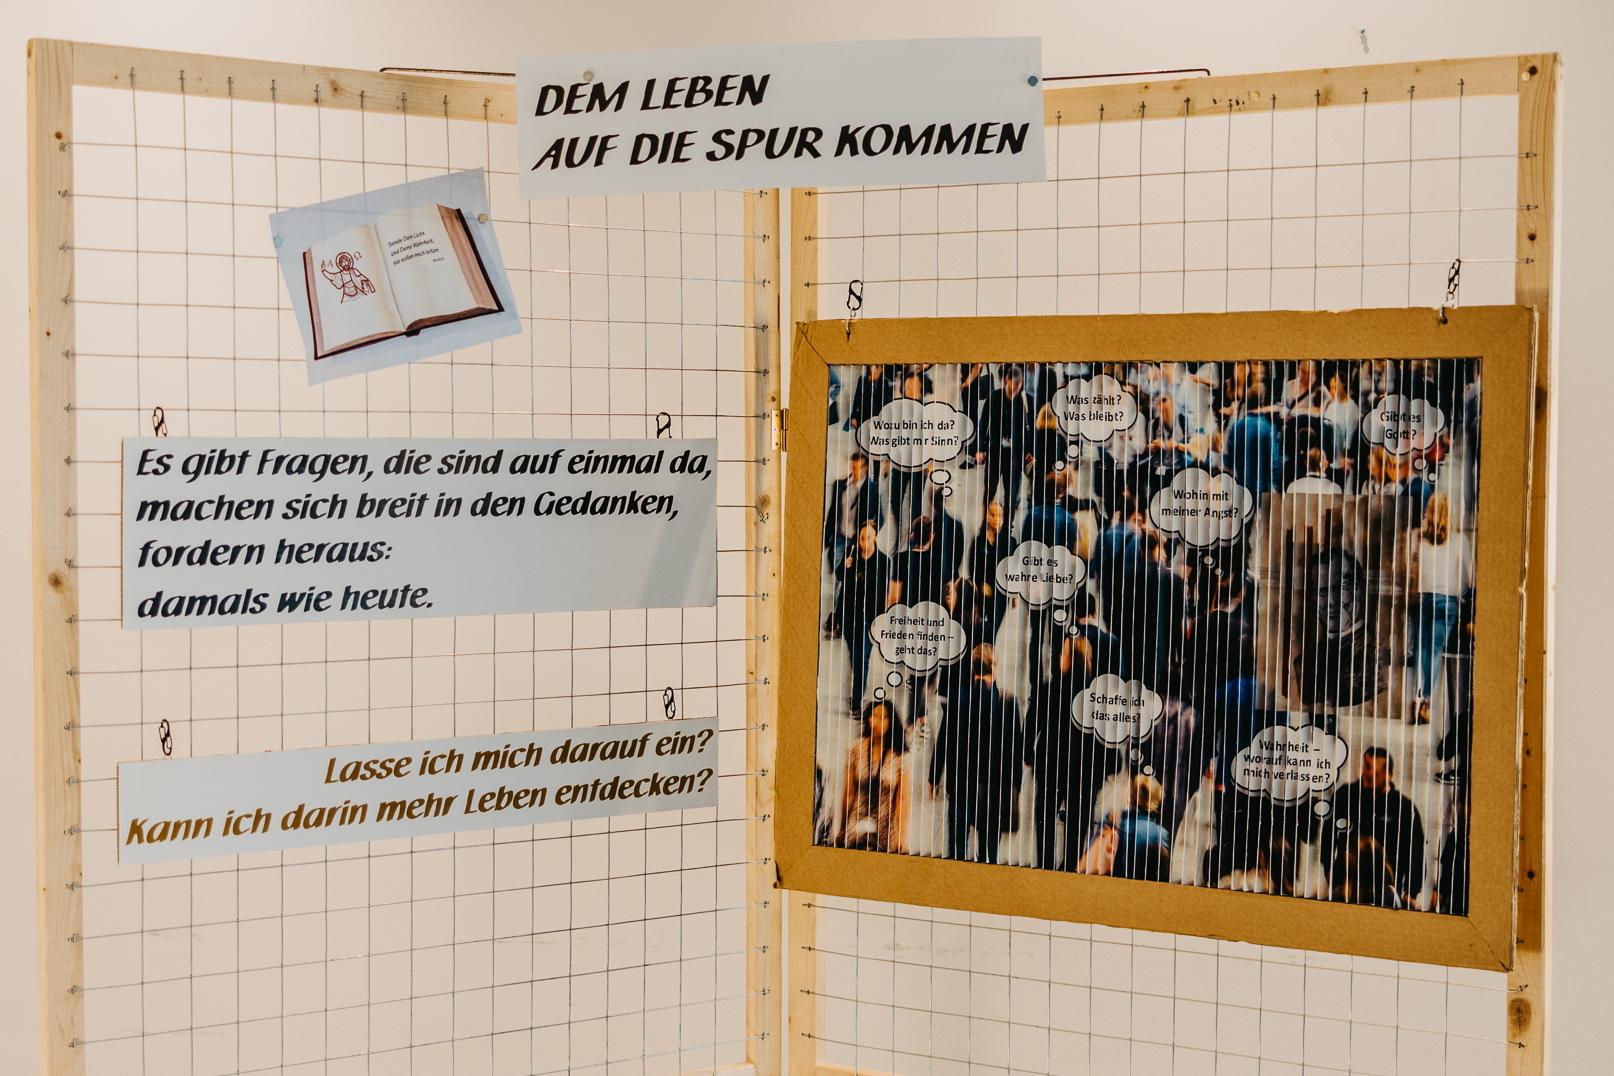 DEM LEBEN
AUF DIE SPUR KOMMEN
Sende Dein Licht
und Deine Wahrheit,
sie sollen mich leiten
Es gibt Fragen, die sind auf einmal da,
machen sich breit in den Gedanken,
fordern heraus:
damals wie heute.
Lasse ich mich darauf ein?
Kann ich darin mehr Leben entdecken?
Wozu bin ich da?
Was gibt mir Sinn?
Was zählt?
Was bleibt?
Gibt es
Gott?
Wohin mit
meiner Angst?
Gibt es
wahre Liebe?
Freiheit und
Frieden finden –
geht das?
Schaffe ich
das alles?
Wahrheit –
worauf kann ich
mich verlassen?